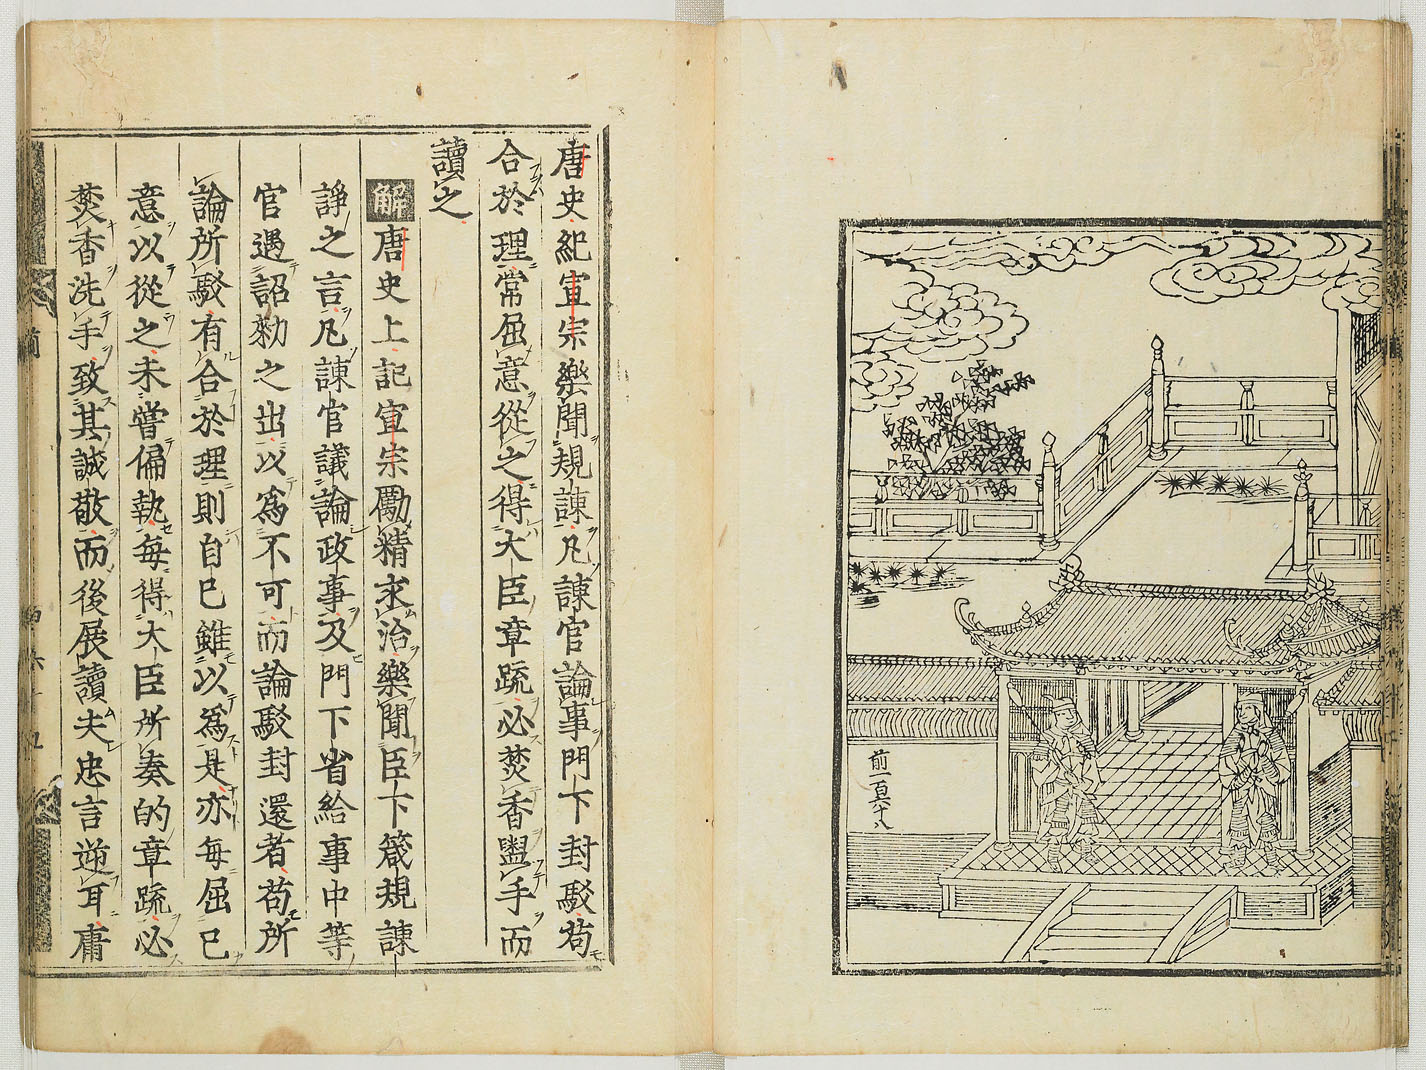 前一百六十八
唐史紀宣宗樂聞規諫凡諫官論事門下封駁苟
合於理常屈意從之得大臣章疏必焚香盥手而
讀之
解唐史上記宣宗勵精求治樂聞臣下箴規諫
諍之言凡諫官議論政事及門下省給事中等
官遇詔勑之出以爲不可而論駁封還者苟所
論所駁有合於理則自己雖以爲是亦每屈己
意以從之未嘗偏執每得大臣所奏的章疏必
焚香洗手致其誠敬而後展讀夫忠言逆耳庸